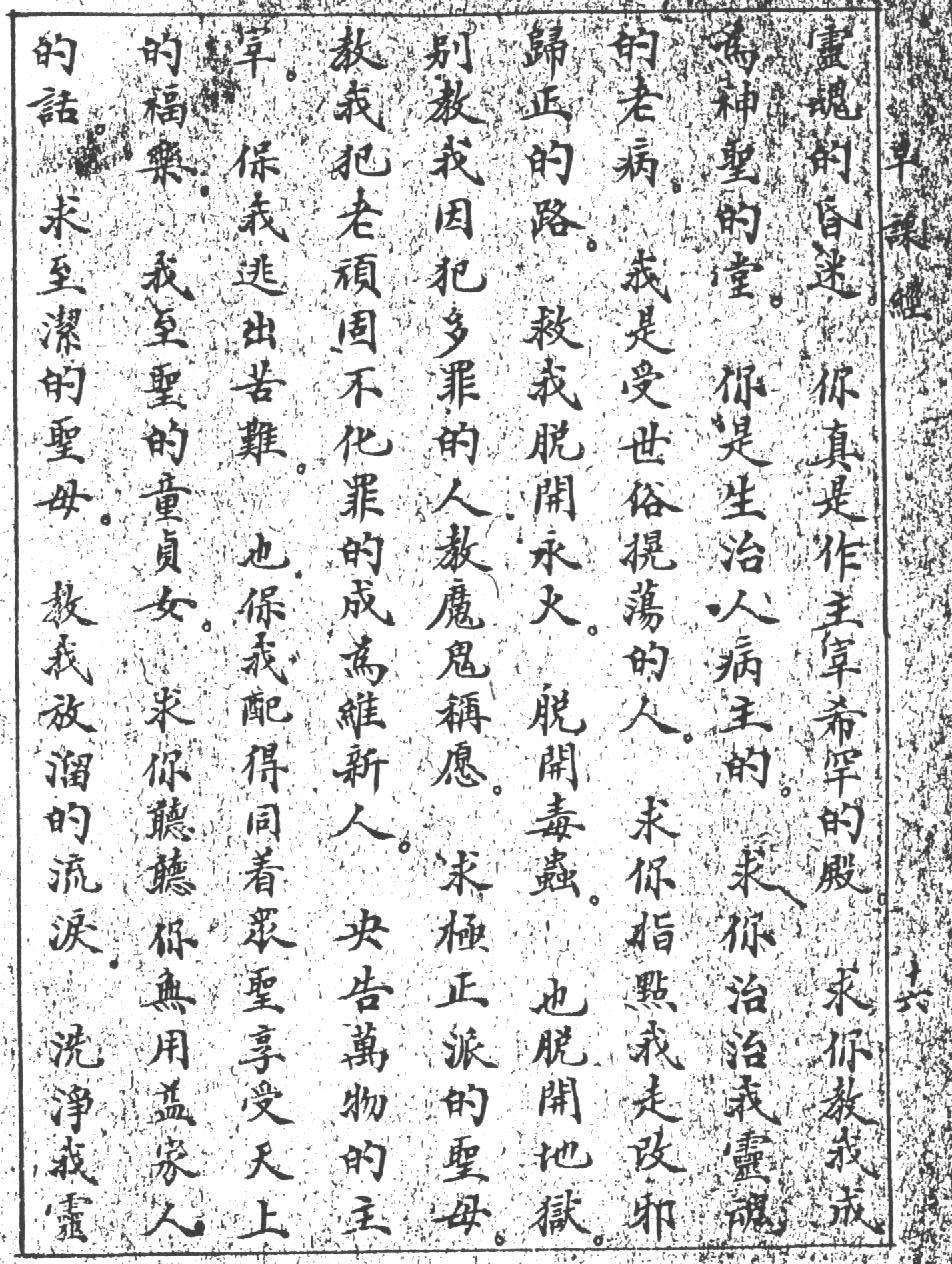 早課經 十六
靈魂的昏迷。你真是作主宰希罕的殿 求你教我成
為神聖的堂。你是生治人病主的。求你治治我靈魂
的老病。我是受世俗撓蕩的人。求你指點我走改邪
歸正的路。救我脫開永火。脫開毒蟲。也脫開地獄。
別教我因犯多罪的人教魔鬼稱愿。求極正派的聖母。
教我犯老頑固不化罪的成為維新人。央告萬物的主
宰。保我逃出苦難。也保我配得同着眾聖享受天上
的福樂。我至聖的童貞女。求你聽聽你無用益家人
的話。求至潔的聖母。教我放溜的流淚。洗淨我靈